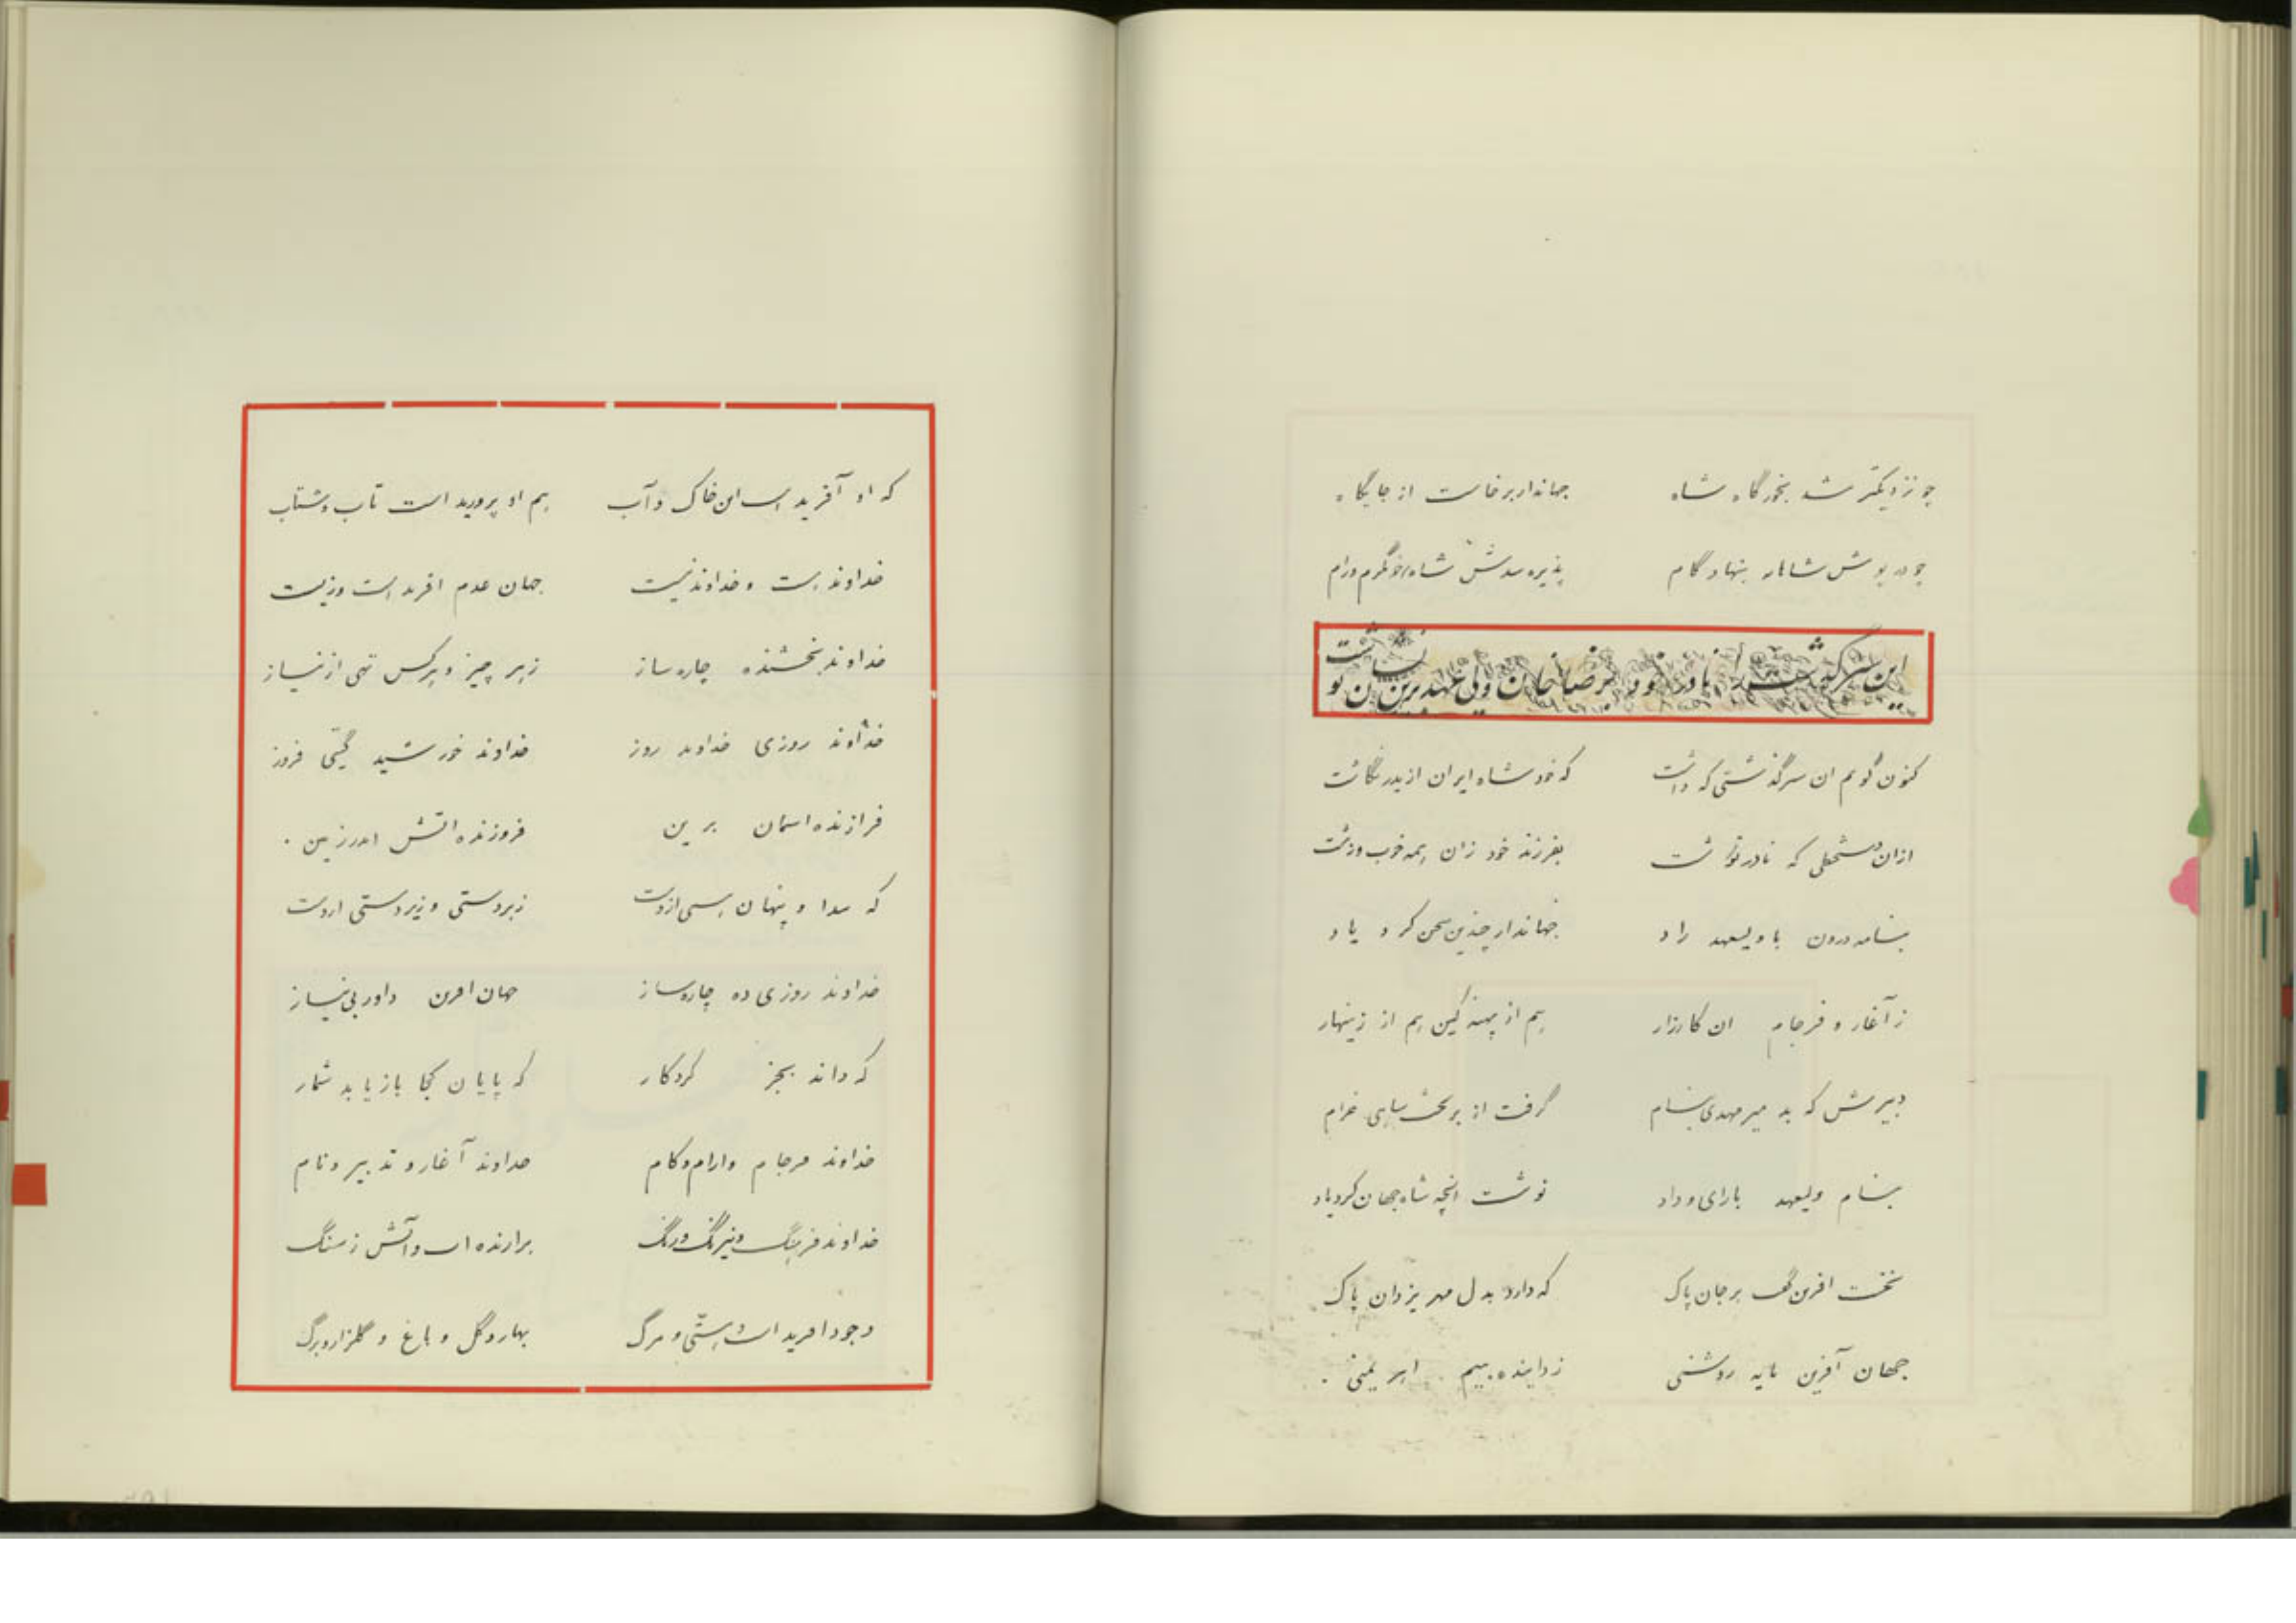 چو نزدیکتر شد بخرگاه شاه جهاندار برخاست از جایگاه
چو درپوش شاهانه بنهاد گام پذیره شدش شاه
این سرگذشت را نادر از زود رضا خان ولی عهد برین نوشت
کنون گویم ان سرگذشتی که داشت که خود شاه ایران از بدر نگاشت
ازان مشکلی که نادر نوشت بفرزند خود زان همه خوب و زشت
بنامه درون با ولیعهد راد جهاندار چندین سخن کرد یاد
ز آغاز و فرجام ان کارزار هم از پهنه کین هم از زینهار
دبیرش که بد میر مهدی بنام گرفت از
بنام ولیعهد بارای و داد نوشت انچه شاه جهان کرد یاد
نخست افرین گفت بر جان پاک که دارد بدل مهر یزدان پاک
جهان آفرین مایه روشنی زداینده بیم اهریمنی
که او آفریده است این خاک و آب هم او پرورید است تاب و شتاب
خداوند هست و خداوند نیست جهان عدم افریدست و زیست
خداوند بخشنده چاره ساز زهر چیز و هرکس تهی از نیاز
خداوند روزی خداوند روز خداوند خورشید گیتی فروز
فرازنده اسمان برین فروزنده اتش اندر زمین
که پیدا و پنهان هستی ازوست زبردستی و زیردستی ازوست
خداوند روزی ده چاره ساز جهان افرین داور بی نیاز
که داند بجز کردگار که پایان کجا باز یابد شمار
خداوند فرجام و ارام و کام خداوند آغاز و تدبیر و نام
خداوند فرهنگ و نیرنگ و رنگ برارنده اب و آتش ز سنگ
وجود افرید است هستی و مرگ بهار و گل و باغ و گلزار و برگ